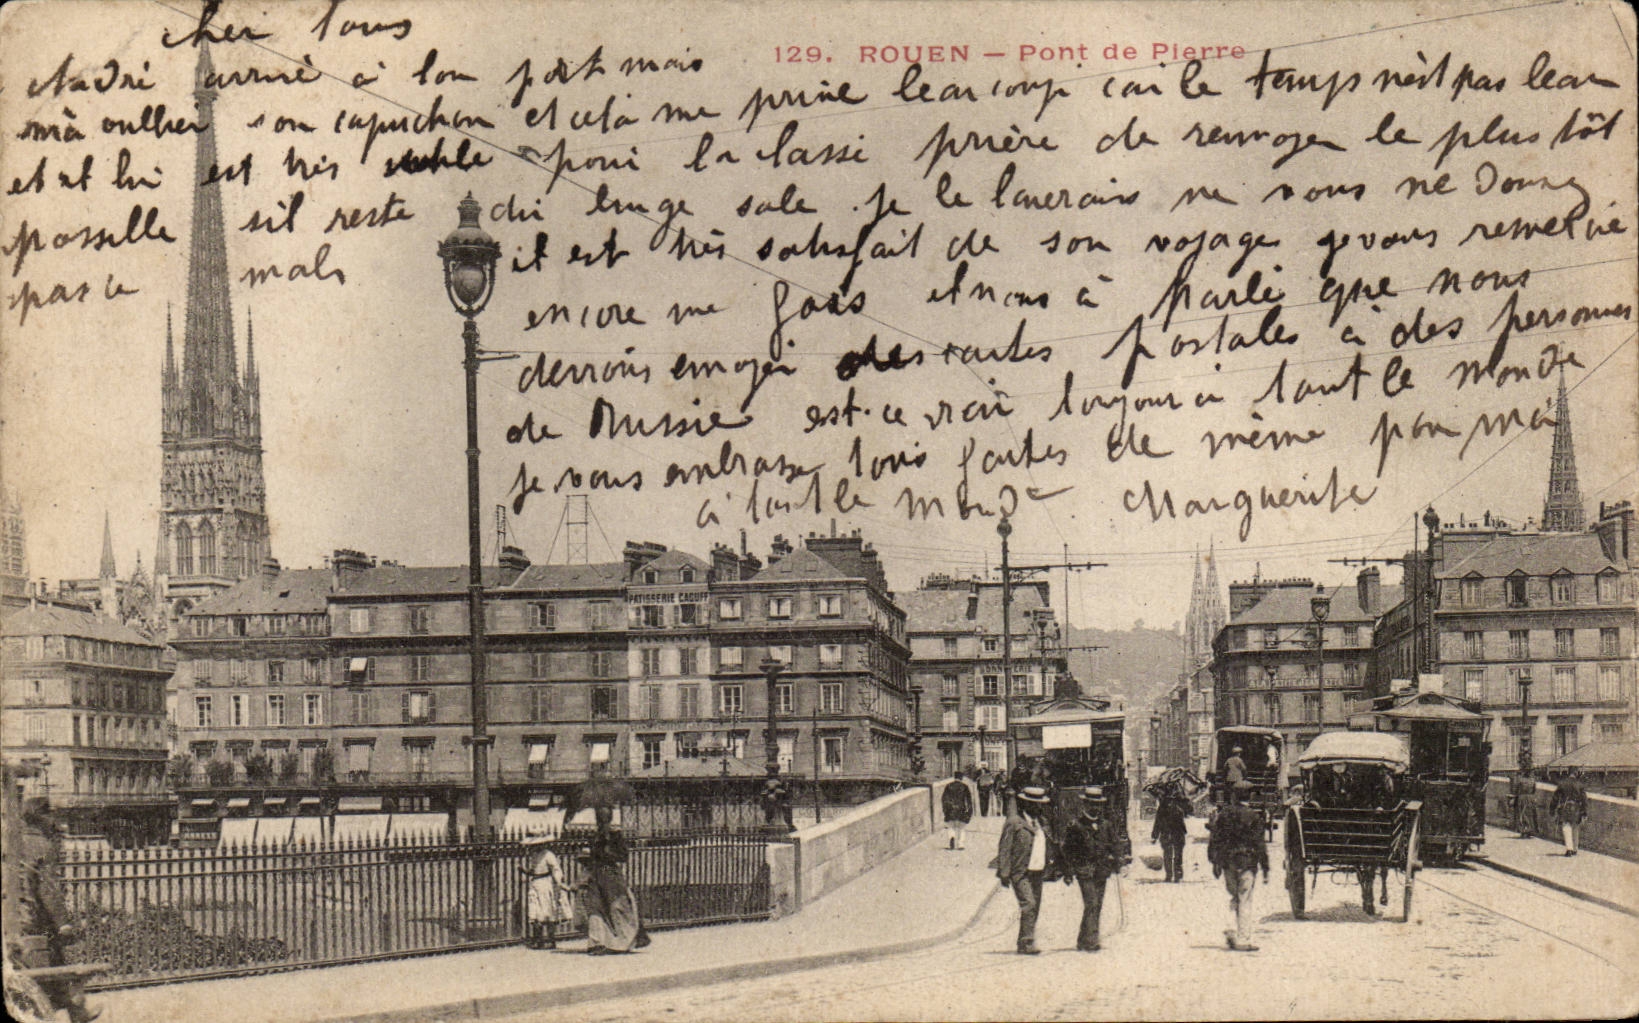 129. ROUEN — Pont de Pierre
cher tous
André arrivé à bon port mais
mà oullier son capuchon et cela me prive beaucoup car le temps nest pas beau
et et lui est très utile pour la classe prière de renvoyer le plus tôt
possille sil reste du linge sale je le laverais ne vous ne donnez
pas ce mals il est très satisfait de son voyage je vous remercie
encore me fois et nous à parlé que nous
devrions envoyer des cartes postales à des personnes
de Russie est-ce vrai toujour à tout le monde
je vous embrasse tous faites de même pour moi
à tout le monde Marguerite
PATISSERIE